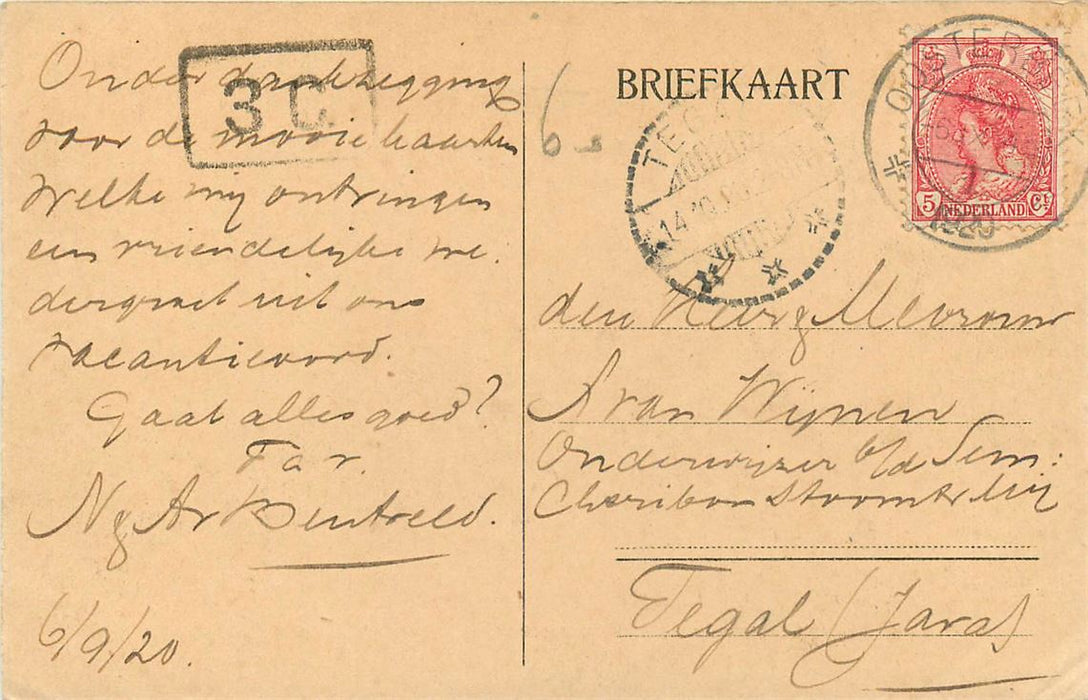 Onder dankzegging
voor de mooie kaarten
welke mij ontvingen
een vriendelijke we-
dergroet uit ons
vacantieoord.
Gaat alles goed?
Fa v.
N Ar
6/9/20.
3 C.
BRIEFKAART
TEGAL
14.10.
OOSTERBEEK
1920
5 NEDERLAND Ct
den Heer & Mevrouw
A van Wijnen
Onderwijzer b/d Sem:
Cheribon Stoomtr Mij
Tegal (Java)